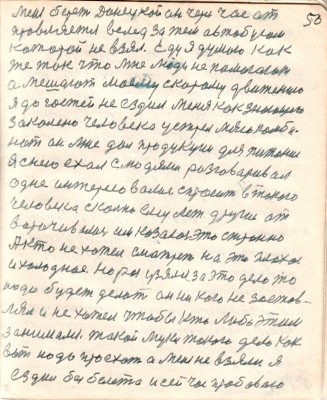 50
меня берет Донецкой он через час от
провляется вслед за тем автобусом
которой не взял. Еду я думаю как
же так что мне люди не помогают
а мешают моему скорому движению
я до гостей не ездил меня как
закалено человека мясокомби-
нат он мне дал продукции для питании
я с нею ехал с людями разговаривал
одне интересовались спросит в такого
человека сколко ему лет другие от
ворачивались им казалось это странно
я кто не хотел смотреть на это плохое
и холодное но раз узялся за это дело то
надо будет делать он ни кого не застав-
лял и не хотел чтобы кто либо этим
занимался. такой муки такого дела как
вот надо проехать а меня не взяли я
ездил без билета и сей час пробоваю